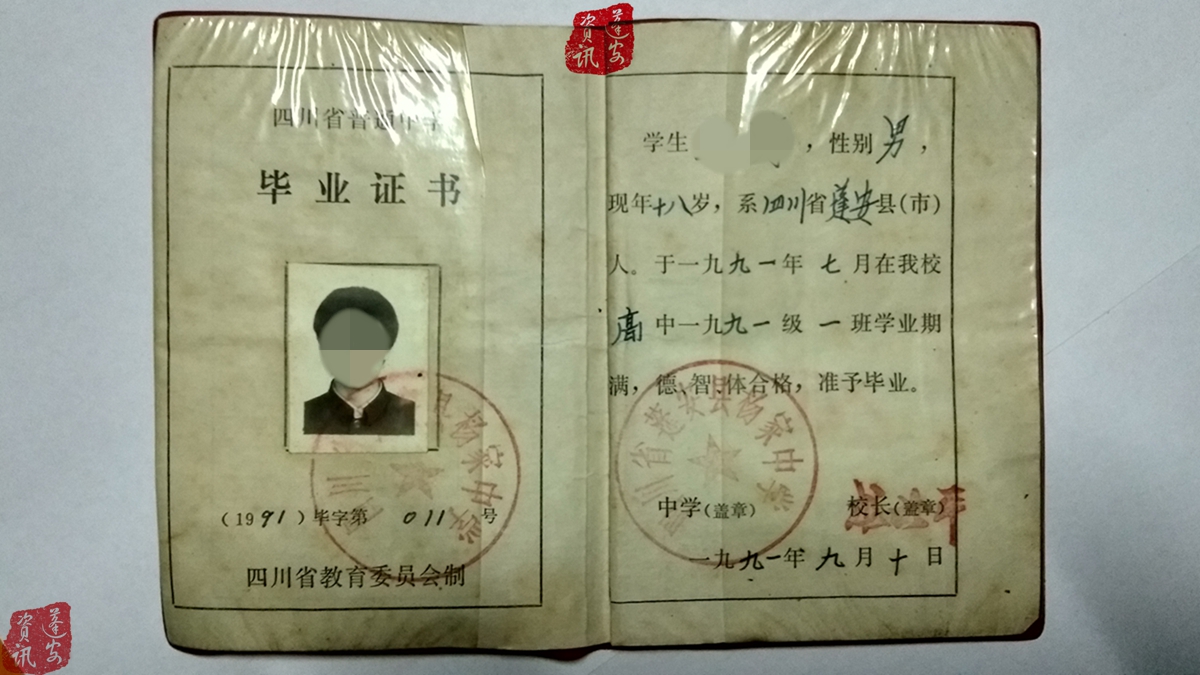 蓬安
资讯
四川省普通中学
毕业证书
（1991）毕字第 011 号
四川省教育委员会制
学生 ，性别男，
现年十八岁，系四川省蓬安县（市）
人。于一九九一年 七月在我校
高中一九九一级 一班学业期
满，德、智、体合格，准予毕业。
四川省蓬安县杨家中学
中学（盖章） 校长（盖章）
一九九一年九月十日
县杨家中学
蓬安
资讯